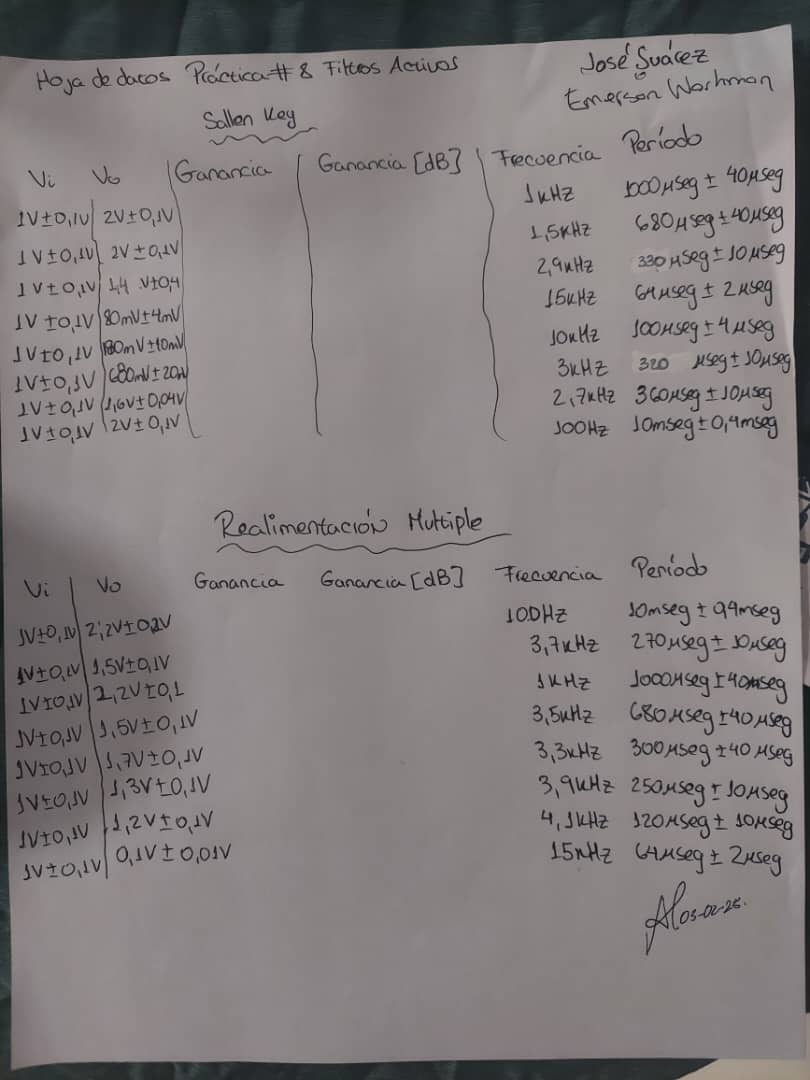 Hoja de datos Práctica # 8 Filtros Activos
José Suárez
Emerson Washman
Sallen Key
Vi Vo Ganancia Ganancia [dB] Frecuencia Período
1V±0,1V 2V±0,1V 1kHz 1000μseg ± 40μseg
1V±0,1V 2V±0,1V 1,5kHz 680μseg ±40μseg
1V±0,1V 1,4 V±0,4 2,9kHz 330μseg ± 10μseg
1V±0,1V 80mV±4mV 15kHz 64μseg ± 2μseg
1V±0,1V 180mV±10mV 10kHz 100μseg ± 4μseg
1V±0,1V 680mV±20m 3kHz 320 μseg ± 10μseg
1V±0,1V 1,6V±0,04V 2,7kHz 360μseg ±10μseg
1V±0,1V 2V±0,1V 100Hz 10mseg ± 0,4mseg
Realimentación Multiple
Vi Vo Ganancia Ganancia [dB] Frecuencia Período
1V±0,1V 2,2V±0,2V 100Hz 10mseg ± 0,4mseg
1V±0,1V 1,5V±0,1V 3,7kHz 270μseg ± 10μseg
1V±0,1V 2,2V±0,1 1kHz 1000μseg ± 40μseg
1V±0,1V 1,5V±0,1V 3,5kHz 680μseg ±40μseg
1V±0,1V 1,7V±0,1V 3,3kHz 300μseg ±40μseg
1V±0,1V 1,3V±0,1V 3,9kHz 250μseg ± 10μseg
1V±0,1V 1,2V±0,1V 4,1kHz 120μseg ± 10μseg
1V±0,1V 0,1V ± 0,01V 15kHz 64μseg ± 2μseg
03-02-25.